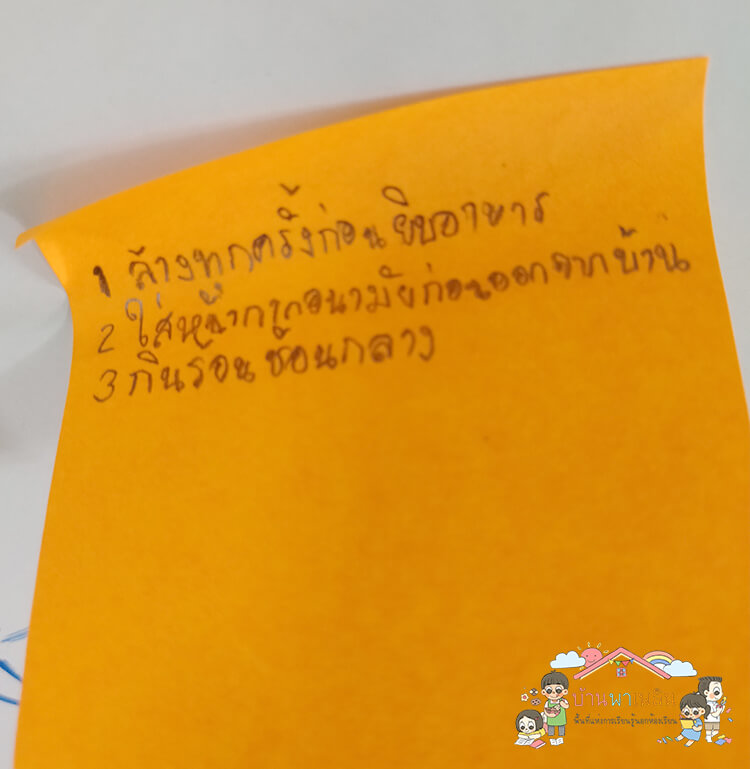 1 ล้างทุกครั้งก่อนยิบอาหาร
2 ใส่หน้ากากอนามัยก่อนออกจากบ้าน
3 กินรอนช้อนกลาง
บ้านพาเพลิน
พื้นที่แห่งการเรียนรู้นอกห้องเรียน